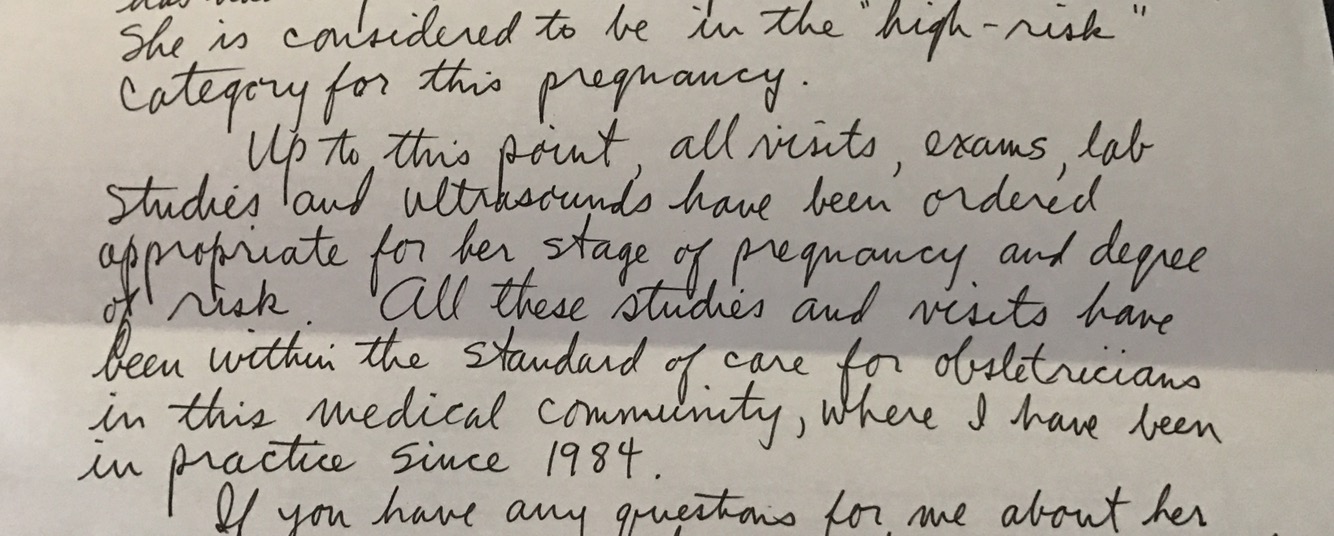 She is considered to be in the "high-risk"
category for this pregnancy.
Up to this point, all visits, exams, lab
studies and ultrasounds have been ordered
appropriate for her stage of pregnancy and degree
of risk. All these studies and visits have
been within the standard of care for obstetricians
in this medical community, where I have been
in practice since 1984.
If you have any questions for me about her